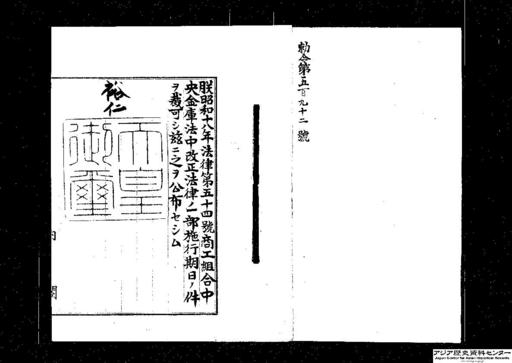 勅令第五百九十二號
朕昭和十八年法律第五十四號商工組合中
央金庫法中改正法律ノ一部施行期日ノ件
ヲ裁可シ茲ニ之ヲ公布セシム
裕仁
天皇
御璽
内
閣
アジア歴史資料センター
Japan Center for Asian Historical Records